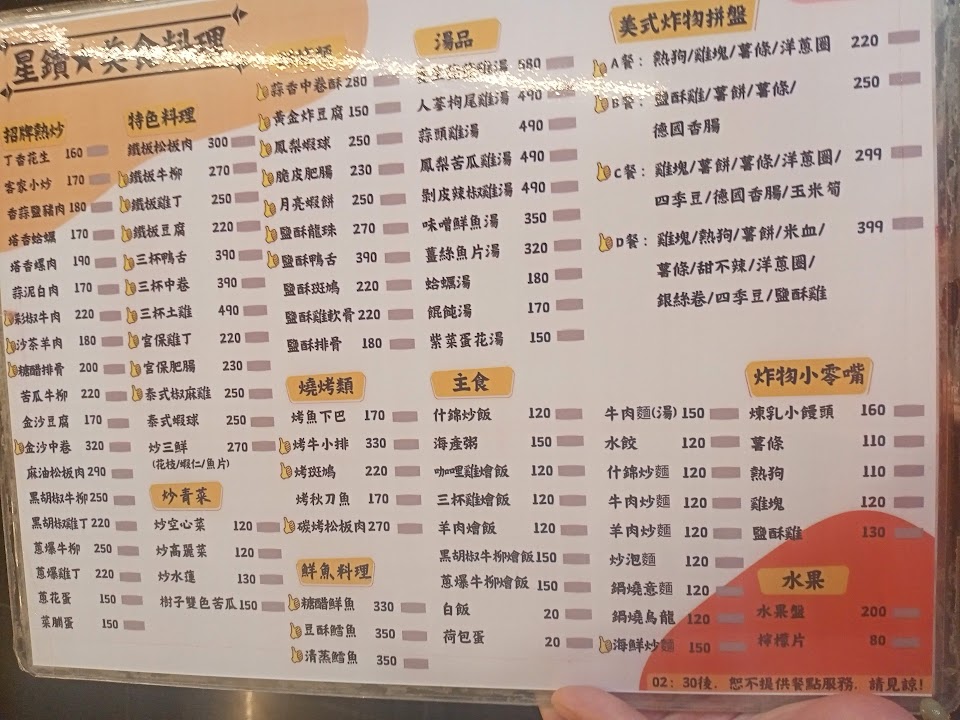 星鑽★美食料理
招牌熱炒
丁香花生 160
客家小炒 170
香蒜鹽豬肉 180
塔香蛤蠣 170
塔香螺肉 190
蒜泥白肉 170
彩椒牛肉 220
沙茶羊肉 180
糖醋排骨 200
苦瓜牛柳 220
金沙豆腐 170
金沙中卷 320
麻油松板肉 290
黑胡椒牛柳 250
黑胡椒雞丁 220
蔥爆牛柳 250
蔥爆雞丁 220
蔥花蛋 150
菜脯蛋 150
特色料理
鐵板松板肉 300
鐵板牛柳 270
鐵板雞丁 250
鐵板豆腐 220
三杯鴨舌 390
三杯中卷 390
三杯土雞 490
宮保雞丁 220
宮保肥腸 230
泰式椒麻雞 250
泰式蝦球 250
炒三鮮 270
(花枝/蝦仁/魚片)
炒青菜
炒空心菜 120
炒高麗菜 120
炒水蓮 130
樹子雙色苦瓜 150
類
蒜香中卷酥 280
黃金炸豆腐 150
鳳梨蝦球 250
脆皮肥腸 230
月亮蝦餅 250
鹽酥龍珠 270
鹽酥鴨舌 390
鹽酥斑鳩 220
鹽酥雞軟骨 220
鹽酥排骨 180
燒烤類
烤魚下巴 170
烤牛小排 330
烤斑鳩 220
烤秋刀魚 170
碳烤松板肉 270
鮮魚料理
糖醋鮮魚 330
豆酥鱈魚 350
清蒸鱈魚 350
湯品
雞湯 580
人蔘枸尾雞湯 490
蒜頭雞湯 490
鳳梨苦瓜雞湯 490
剝皮辣椒雞湯 490
味噌鮮魚湯 350
薑絲魚片湯 320
蛤蠣湯 180
餛飩湯 170
紫菜蛋花湯 150
主食
什錦炒飯 120
海產粥 150
咖哩雞燴飯 120
三杯雞燴飯 120
羊肉燴飯 120
黑胡椒牛柳燴飯 150
蔥爆牛柳燴飯 150
白飯 20
荷包蛋 20
牛肉麵(湯) 150
水餃 120
什錦炒麵 120
牛肉炒麵 120
羊肉炒麵 120
炒泡麵 120
鍋燒意麵 120
鍋燒烏龍 120
海鮮炒麵 150
美式炸物拼盤
A餐：熱狗/雞塊/薯條/洋蔥圈 220
B餐：鹽酥雞/薯餅/薯條/ 250
德國香腸
C餐：雞塊/薯餅/薯條/洋蔥圈/ 299
四季豆/德國香腸/玉米筍
D餐：雞塊/熱狗/薯餅/米血/ 399
薯條/甜不辣/洋蔥圈/
銀絲卷/四季豆/鹽酥雞
炸物小零嘴
煉乳小饅頭 160
薯條 110
熱狗 110
雞塊 120
鹽酥雞 130
水果
水果盤 200
檸檬片 80
02：30後，恕不提供餐點服務，請見諒!